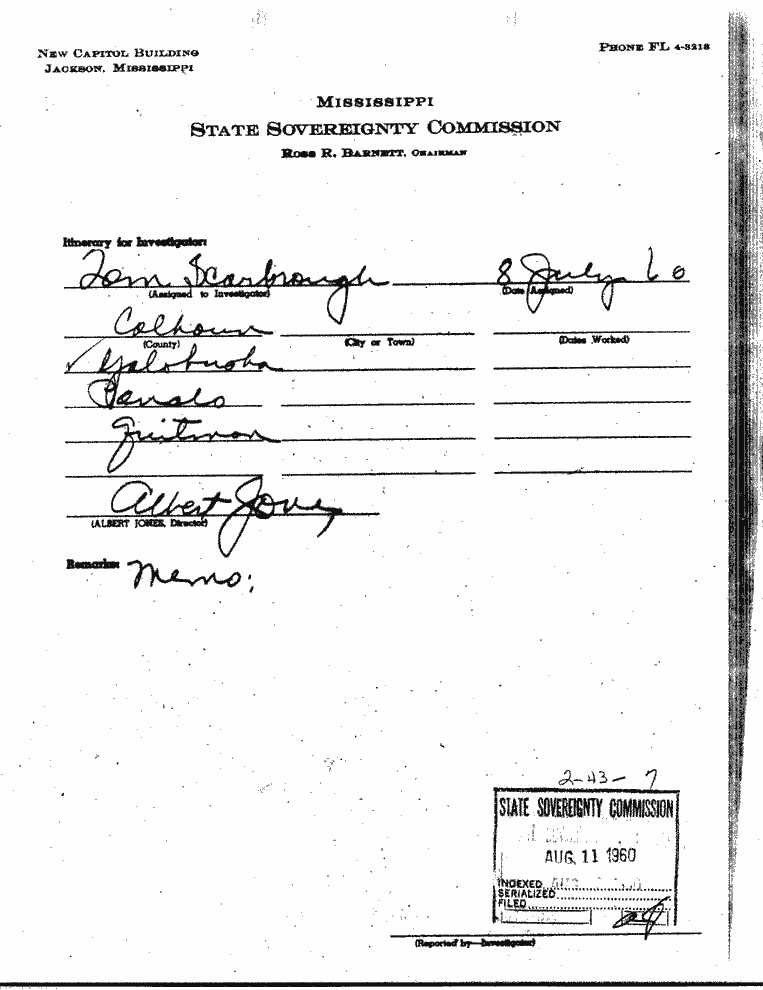 NEW CAPITOL BUILDING
JACKSON, MISSISSIPPI
PHONE FL 4-3218
MISSISSIPPI
STATE SOVEREIGNTY COMMISSION
ROSS R. BARNETT, CHAIRMAN
Itinerary for Investigator:
Tom Scarbrough 8 July 60
(Assigned to Investigator) (Date Assigned)
Calhoun
(County) (City or Town) (Dates Worked)
✓ Yalobusha
Panola
Quitman
Albert Jones
(ALBERT JONES, Director)
Remarks: Memo:
2-43-7
STATE SOVEREIGNTY COMMISSION
AUG 11 1960
INDEXED
SERIALIZED
FILED
aj
(Reported by—Investigator)